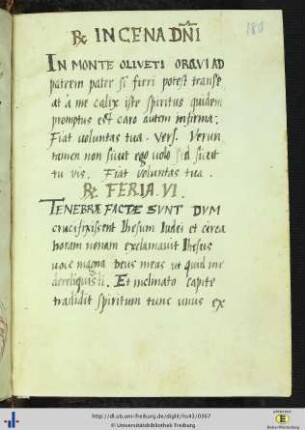 ℞ IN CENA DNI
180
IN MONTE OLIVETI ORAVI AD
patrem pater si fieri potest transe
at a me calix iste spiritus quidem
promptus est caro autem infirma:
Fiat voluntas tua. Vers. Verun
tamen non sicut ego volo sed sicut
tu vis. Fiat voluntas tua.
℞ FERIA. VI.
TENEBRÆ FACTÆ SUNT DUM
crucifixissent Ihesum Iudei et circa
horam nonam exclamavit Ihesus
voce magna Deus meus ut quid me
dereliquisti. Et inclinato capite
tradidit spiritum tunc unus ex
http://dl.ub.uni-freiburg.de/diglit/hs43/0367
© Universitätsbibliothek Freiburg